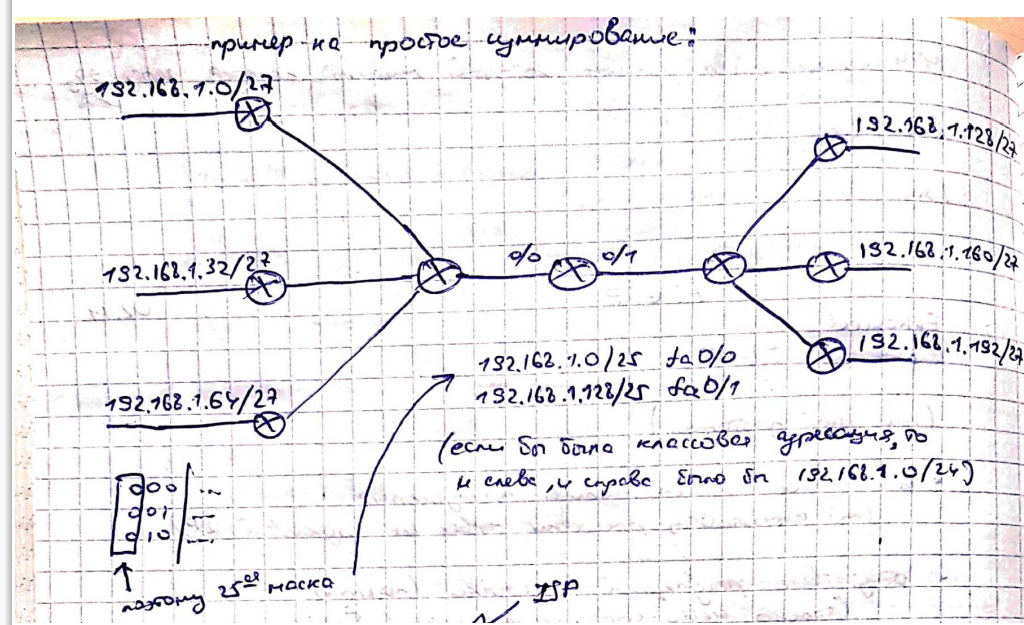 пример на простое суммирование:
192.168.1.0/27
192.168.1.128/27
0/0
0/1
192.168.1.32/27
192.168.1.160/27
192.168.1.64/27
192.168.1.192/27
192.168.1.0/25 fa0/0
192.168.1.128/25 fa0/1
(если бы была классовая адресация, то
и слева, и справа было бы 192.168.1.0/24)
000 ...
001 ...
010 ...
поэтому 25ая маска
ISP